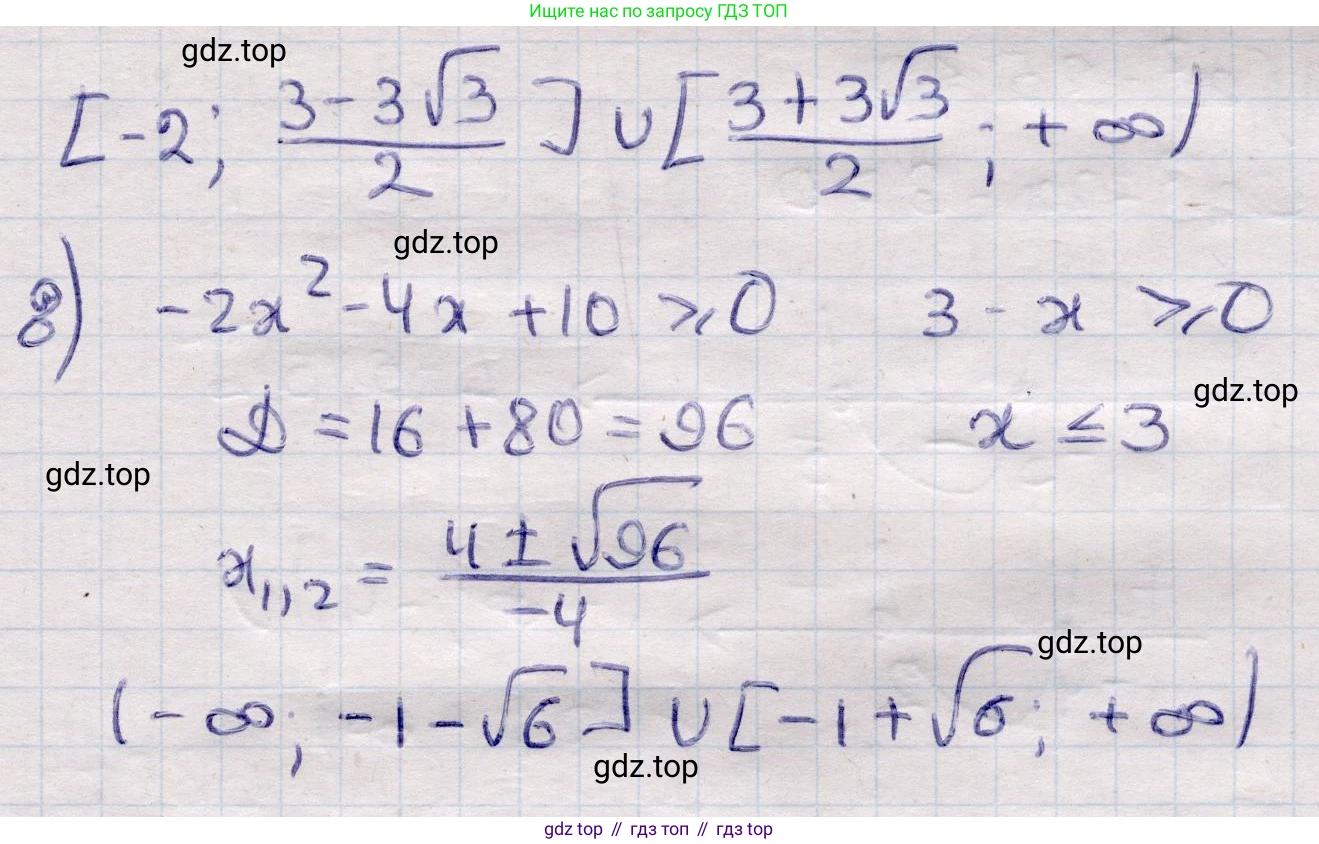 Ищите нас по запросу ГДЗ ТОП
gdz.top
[-2; (3-3√3)/2] ∪ [(3+3√3)/2; +∞)
gdz.top
8) -2x² - 4x + 10 ⩾ 0 3 - x ⩾ 0
gdz.top
D = 16 + 80 = 96 x ≤ 3
gdz.top
x₁,₂ = (4 ± √96)/(-4)
gdz.top
(-∞; -1-√6] ∪ [-1+√6; +∞)
gdz.top
gdz.top // гдз топ // gdz.top